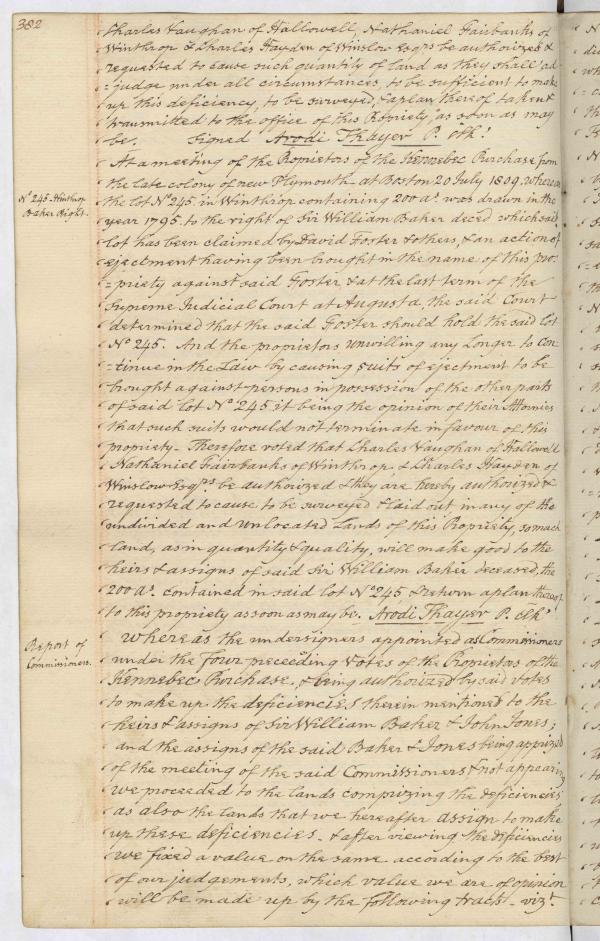 382
Charles Vaughan of Hallowell, Nathaniel Fairbanks of
Winthrop & Charles Hayden of Winslow Esqrs be authorized &
requested to cause such quantity of land as they shall ad-
=judge under all circumstances, to be sufficient to make
up this deficiency, to be surveyed, & a plan thereof taken &
transmitted to the office of this Propriety, as soon as may
be. Signed Arodi Thayer P. Clk.
At a meeting of the Proprietors of the Kennebec Purchase from
the late colony of new Plymouth at Boston 20 July 1809, whereas
No 245 Winthrop
Baker Right.
the lot No 245 in Winthrop containing 200 as. was drawn in the
year 1795. to the right of Sir William Baker decd. which said
lot has been claimed by David Foster & others, & an action of
ejectment having been brought in the name of this pro-
=priety against said Foster, & at the last term of the
Supreme Judicial Court at Augusta, the said Court
determined that the said Foster should hold the said lot
No 245. And the proprietors unwilling any Longer to con-
=tinue in the Law by causing suits of ejectment to be
brought against persons in possession of the other parts
of said lot No 245, it being the opinion of their Attornies
that such suits would not terminate in favour of this
propriety. Therefore voted that Charles Vaughan of Hallowell
Nathaniel Fairbanks of Winthrop & Charles Hayden of
Winslow Esqrs be authorized & they are hereby authorized &
requested to cause to be surveyed & laid out in any of the
undivided and unlocated Lands of this Propriety, so much
land, as in quantity & quality, will make good to the
heirs & assigns of said Sir William Baker deceased, the
200 as. contained in said lot No 245 & return a plan thereof
to this propriety as soon as may be. Arodi Thayer P. Clk
Report of
Commissioners.
Whereas the undersigners appointed as Commissioners
under the four preceeding Votes of the Proprietors of the
Kennebec Purchase, & being authorized by said votes
to make up the deficiencies therein mentioned to the
heirs & assigns of Sir William Baker & John Jones;
and the assigns of the said Baker & Jones being apprized
of the meeting of the said Commissioners & not appearing
we proceeded to the lands comprizing the deficiencies;
as also the lands that we hereafter assign to make
up these deficiencies. & after viewing the deficiencies
we fixed a value on the same according to the best
of our judgements, which value we are of opinion
will be made up by the following tracts - vizt.